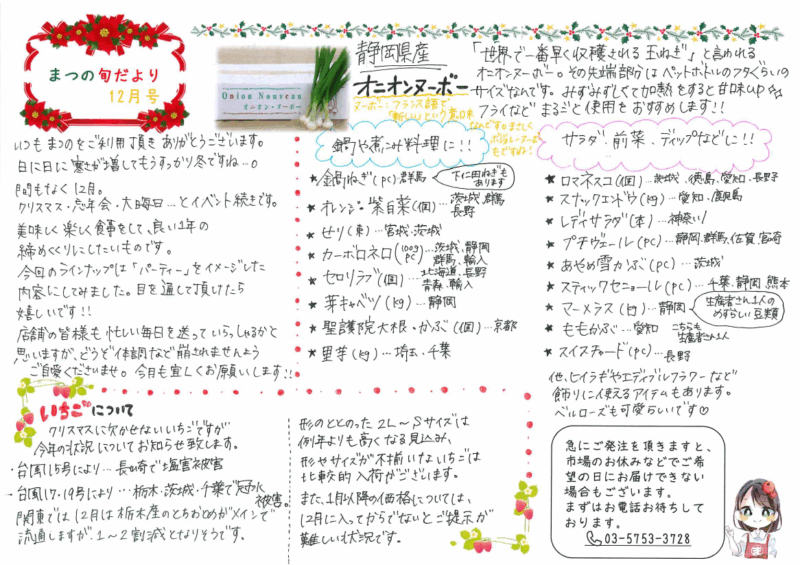 まつの旬だより
12月号
いつもまつのをご利用頂きありがとうございます。
日に日に寒さが増してもうすっかり冬ですね…。
間もなく12月。
クリスマス・忘年会・大晦日…とイベント続きです。
美味しく楽しく食事をして、良い1年の
締めくくりにしたいものです。
今回のラインナップは「パーティー」をイメージした
内容にしてみました。目を通して頂けたら
嬉しいです!!
店舗の皆様も忙しい毎日を送っていらっしゃるかと
思いますが、どうぞ体調など崩されませんよう
ご自愛くださいませ。今月も宜しくお願いします!!
Onion Nouveau
オニオン・ヌーボー
静岡県産
オニオンヌーボー
ヌーボー:フランス語で
「新しい」という意味
なんです。まさしく
ボジョレーヌーボー
もですね!
「世界で一番早く収穫される玉ねぎ」と言われる
オニオンヌーボー。その先端部分はペットボトルのフタぐらいの
サイズなんです。みずみずしくて加熱をすると甘味up
フライなどまるごと使用をおすすめします!!
鍋や煮込み料理に!!
★鍋ねぎ(pc)群馬
下仁田ねぎも
あります
★オレンジ・紫白菜(個)…茨城、群馬
長野
★せり(束)…宮城、茨城
★カーボロネロ(100g pc)…茨城、静岡
群馬、輸入
★セロリラブ(個)…北海道、長野
青森、輸入
★芽キャベツ(kg)…静岡
★聖護院大根・かぶ(個)…京都
★里芋(kg)…埼玉・千葉
サラダ 前菜、ディップなどに!!
★ロマネスコ(個)…茨城、徳島、愛知、長野
★スナックエンドウ(kg)…愛知、鹿児島
★レディサラダ(本)…神奈川
★プチヴェール(pc)…静岡、群馬、佐賀、宮崎
★あやめ雪かぶ(pc)…茨城
★スティックセニョール(pc)…千葉、静岡、熊本
★マーメラス(kg)…静岡
生産者さん1人の
めずらしい豆類
★ももかぶ…愛知
こちらも
生産者さん1人
★スイスチャード(pc)…長野
他、ヒイラギやエディブルフラワーなど
飾りに使えるアイテムもあります。
ベルローズも可愛らしいです♡
いちごについて
クリスマスに欠かせないいちごですが
今年の状況についてお知らせ致します。
・台風15号により…長崎で塩害被害
・台風17・19号により…栃木・茨城・千葉で冠水
被害。
関東では12月は栃木産のとちおとめがメインで
流通しますが、1~2割減となりそうです。
形のととのった2L~Sサイズは
例年よりも高くなる見込み、
形やサイズが不揃いないちごは
比較的入荷がございます。
また、1月以降の価格については、
12月に入ってからでないとご提示が
難しい状況です。
急にご発注を頂きますと、
市場のお休みなどでご希
望の日にお届けできない
場合もございます。
まずはお電話お待ちして
おります。
03-5753-3728